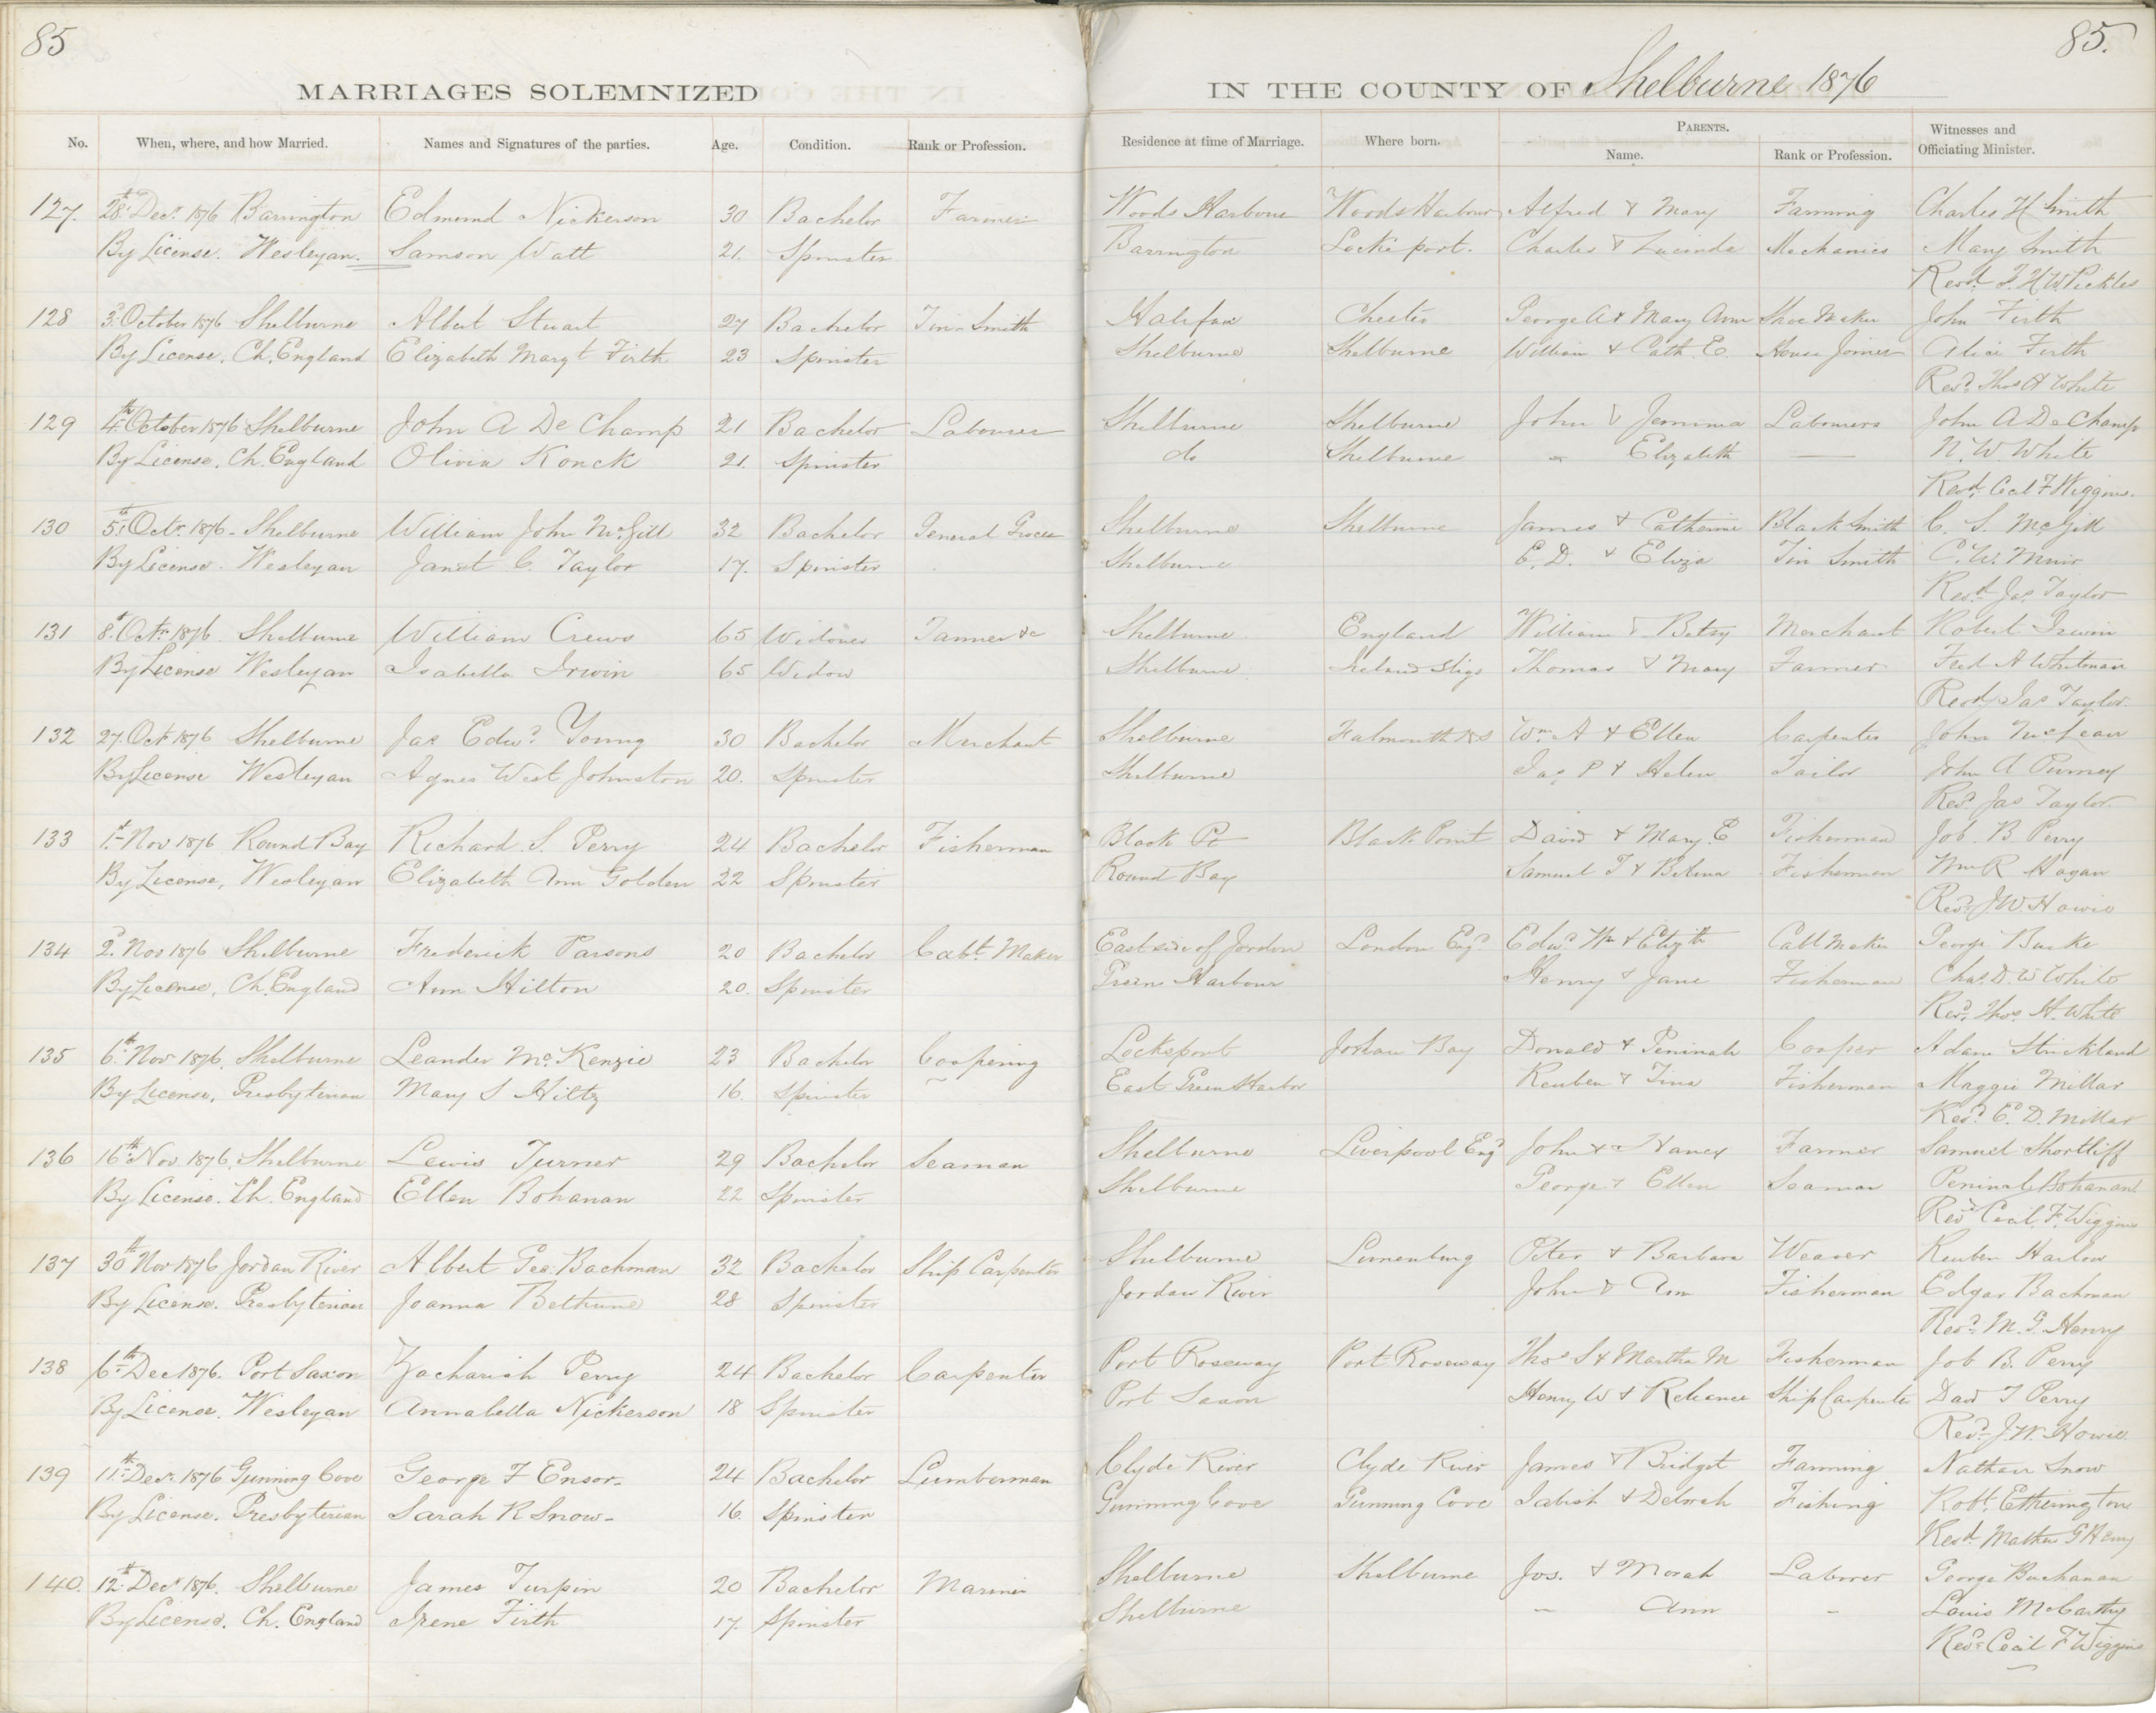 85
85.
MARRIAGES SOLEMNIZED
IN THE COUNTY OF Shelburne 1876
No. When, where, and how Married. Names and Signatures of the parties. Age. Condition. Rank or Profession. Residence at time of Marriage. Where born. PARENTS. Name. Rank or Profession. Witnesses and Officiating Minister.
127. 28th Decr 1876 Barrington Edmond Nickerson 30 Bachelor Farmer Woods Harbour Woods Harbour Alfred & Mary Farming Charles H Smith
By License. Wesleyan. Samson Watt 21. Spinster Barrington Locke port. Charles & Lucinda Mechanics Mary Smith
Revd
128 3d October 1876 Shelburne Albert Stuart 27 Bachelor Tin Smith Halifax Chester George A & Mary Ann Shoe Maker John Firth
By License. Ch. England Elizabeth Margt Firth 23 Spinster Shelburne Shelburne William & Cath E. House Joiner Alice Firth
Revd Thos H White
129 4th October 1876 Shelburne John A De Champ 21 Bachelor Labourer Shelburne Shelburne John & Jemima Labourers John A De Champ
By License. Ch. England Olivia Konck 21. Spinster do Shelburne - Elizabeth — N. W. White
Revd Cecil F Wiggins.
130 5th Octr 1876 - Shelburne William John McGill 32 Bachelor General Grocer Shelburne Shelburne James & Catherine Black Smith C. S. McGill
By License. Wesleyan Janet C. Taylor 17. Spinster Shelburne E. D. & Eliza Tin Smith C. W. Muir
Revd Jas Taylor
131 8th Octr 1876. Shelburne William Crews 65 Widower Tanner &c Shelburne England William & Betsy Merchant Robert Irwin
By License Wesleyan Isabella Irwin 65 Widow Shelburne Ireland Sligo Thomas & Mary Farmer Fred A Whitman
Revd Jas Taylor.
132 27. Oct 1876 Shelburne Jas Edwd Young 30 Bachelor Merchant Shelburne Falmouth NS Wm A & Ellen Carpenter John McLean
By License Wesleyan Agnes West Johnston 20. Spinster Shelburne Jas P & Helen Tailor John A Purney
Revd Jas Taylor.
133 1st Nov 1876 Round Bay Richard S. Perry 24 Bachelor Fisherman Black Pt Black Point David & Mary E Fisherman Job. B Perry
By License, Wesleyan Elizabeth Ann Golden 22 Spinster Round Bay Samuel T & Fisherman Wm R Hagan
Revd J W. Howie
134 2d Nov 1876 Shelburne Frederick Parsons 20 Bachelor Cabt. Maker East side of Jordan London Engd Edwd Wm & Elizth Cabt Maker George Burke
By License, Ch. England Ann Hilton 20. Spinster Green Harbour Henry & Jane Fisherman Chas. D. W White
Revd Thos. H. White
135 6th Nov 1876. Shelburne Leander McKenzie 23 Bachelor Coopering Lockeport Jordan Bay Donald & Peninah Cooper Adam Strickland
By License, Presbyterian Mary S Hiltz 16. Spinster East Green Harbor Reuben & Tina Fisherman Maggie Millar
Revd E. D. Millar
136 16th Nov. 1876, Shelburne Lewis Turner 29 Bachelor Seaman Shelburne Liverpool Engd John & Nancy Farmer Samuel Shortliff
By License. Ch. England Ellen Bohanan 22 Spinster Shelburne George & Ellen Seaman Peninah Bohanan
Revd Cecil. F. Wiggins
137 30th Nov 1876 Jordan River Albert Geo. Bachman 32 Bachelor Ship Carpenter Shelburne Lunenburg Peter & Barbara Weaver Reuben Harlow
By License. Presbyterian Joanna Bethune 28 Spinster Jordan River John & Ann Fisherman Edgar Bachman
Revd M. G. Henry
138 6th Dec 1876. Port Saxon Zachariah Perry 24 Bachelor Carpenter Port Roseway Port Roseway Thos S & Martha M Fisherman Job B. Perry
By License. Wesleyan Annabella Nickerson 18 Spinster Port Saxon Henry W & Reliance Ship Carpenter Davd T Perry
Revd J. W. Howie.
139 11th Decr. 1876 Gunning Cove George F Ensor- 24 Bachelor Lumberman Clyde River Clyde River James & Bridget Farming Nathan Snow
By License. Presbyterian Sarah R Snow- 16. Spinster Gunning Cove Gunning Cove & Deborah Fishing Robt. Etherington
Revd Mathew G Henry
140. 12th Decr 1876. Shelburne James Turpin 20 Bachelor Mariner Shelburne Shelburne Jos. & Norah Laborer George Buchanan
By License. Ch. England Irene Firth 17. Spinster Shelburne - Ann - Louis McCarthy
Revd Cecil F Wiggins